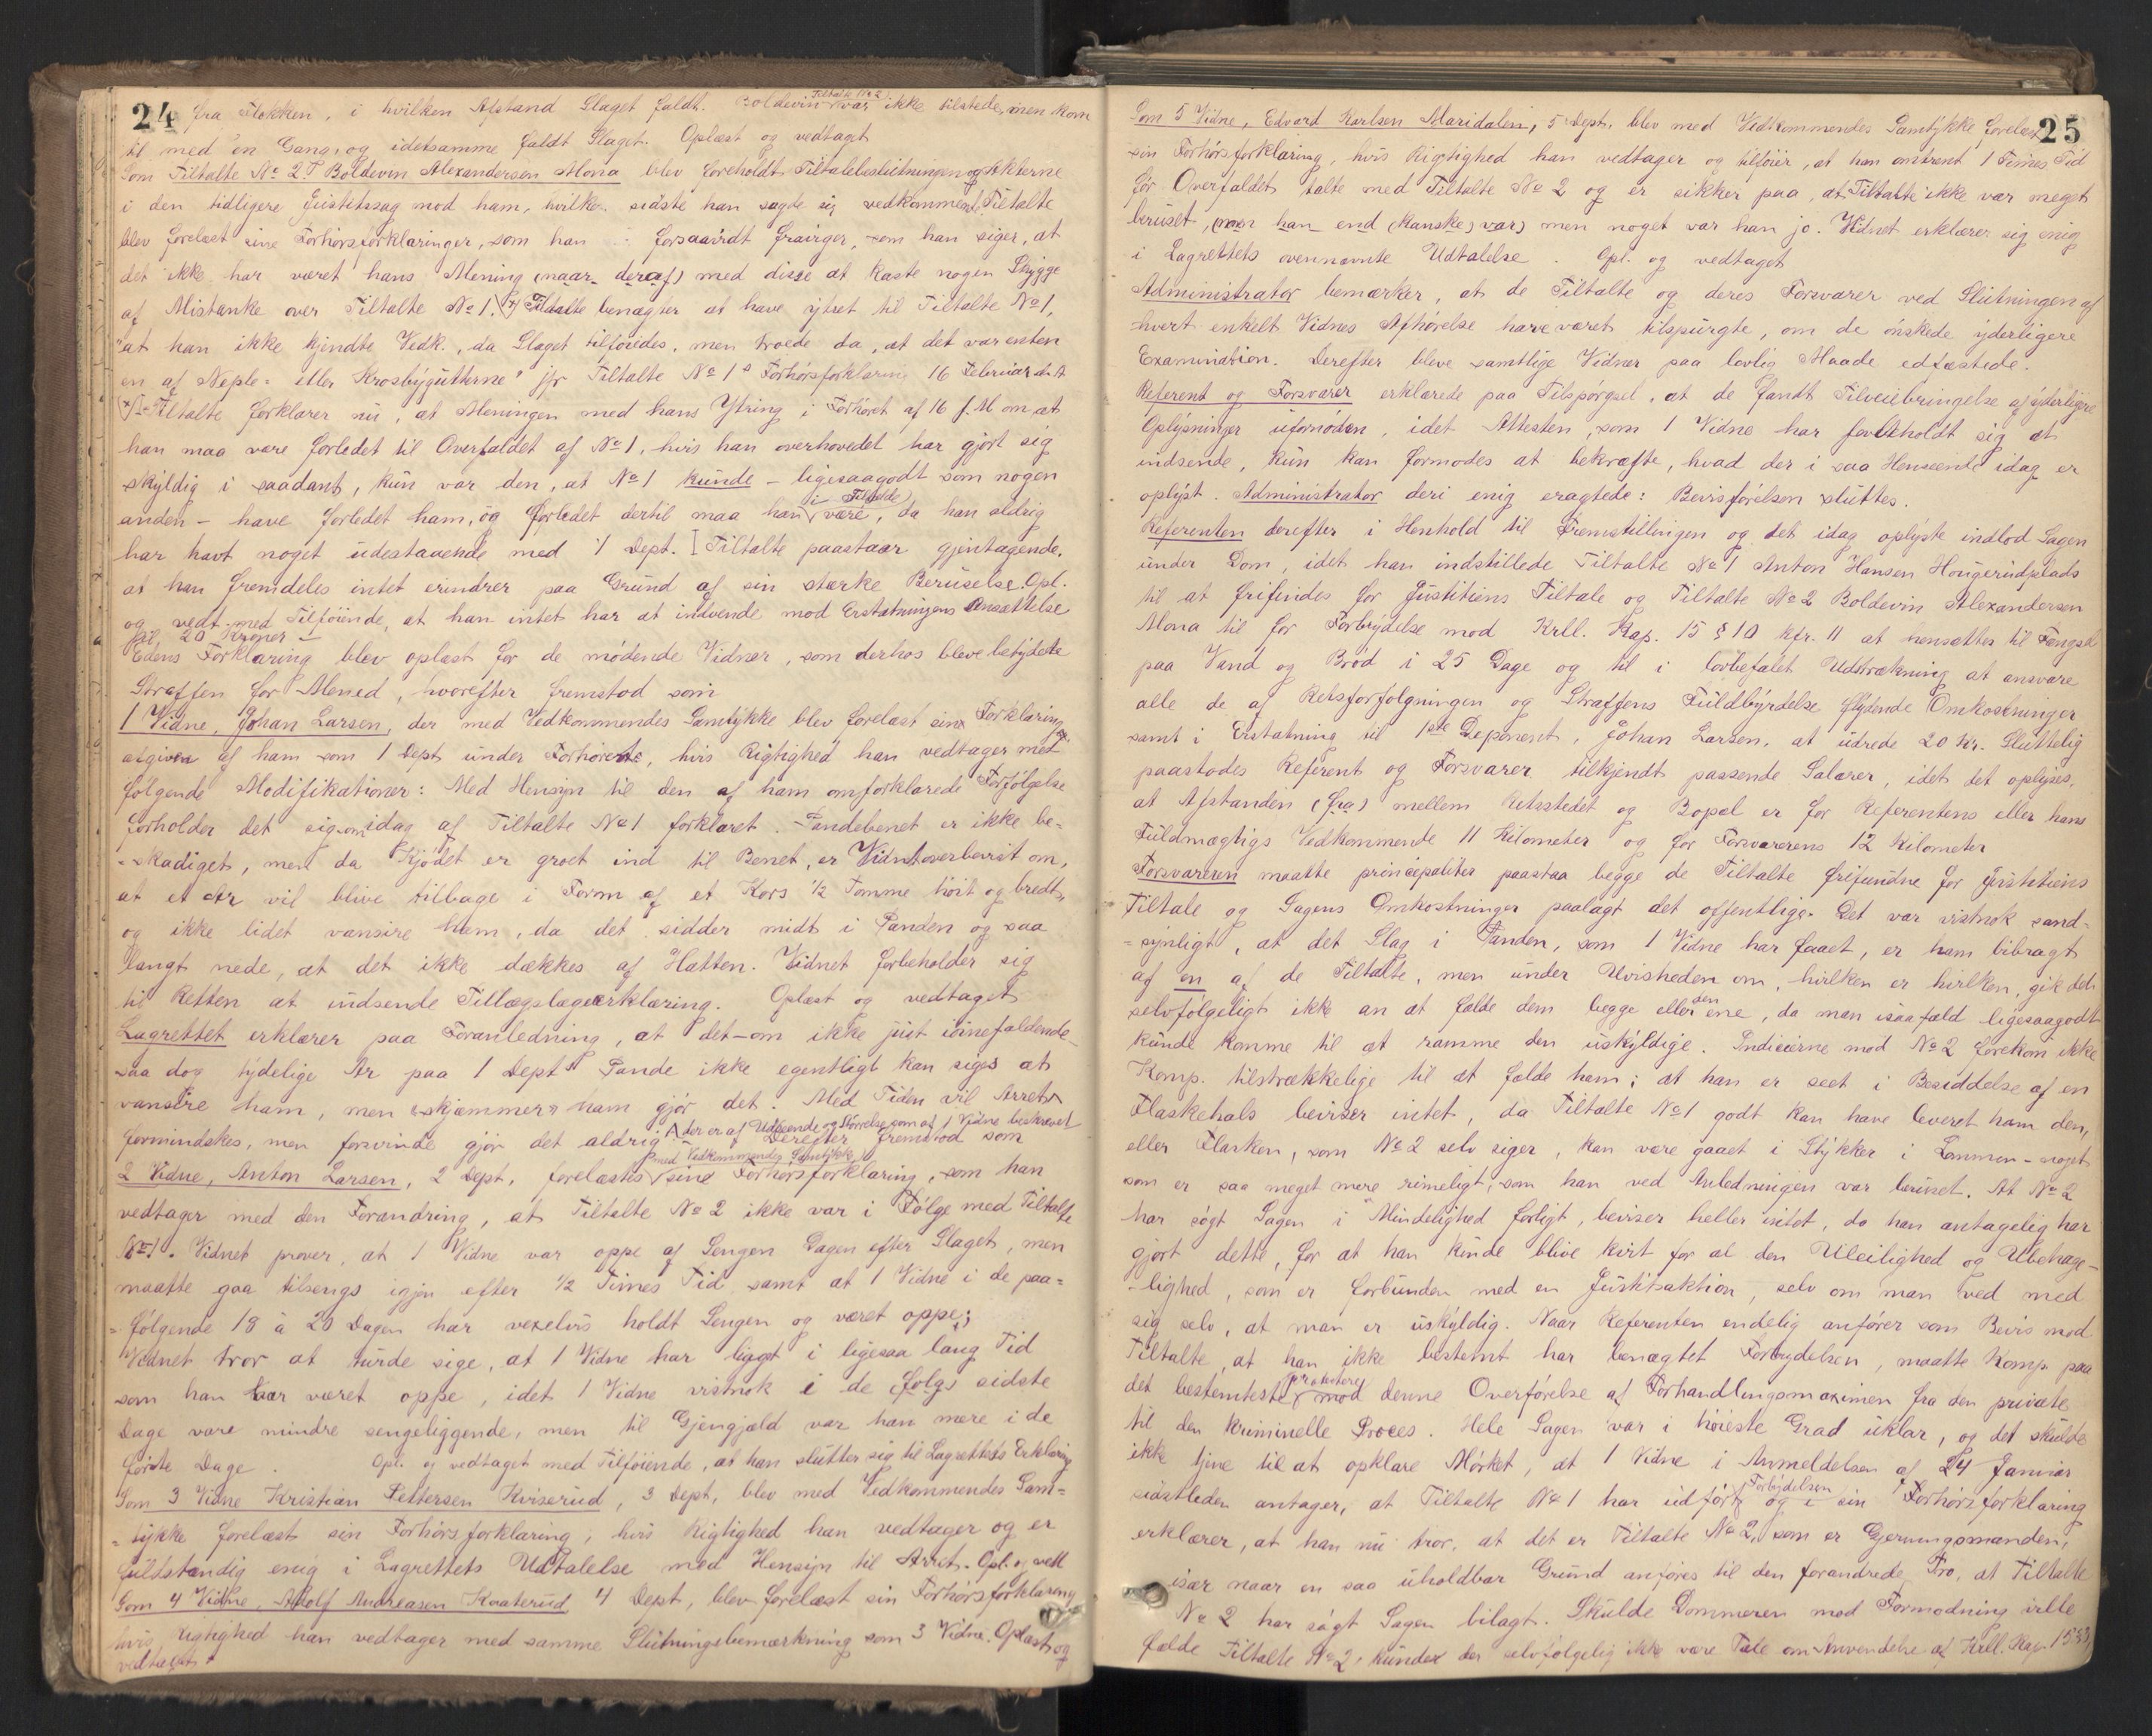 24
fra Flokken, i hvilken Afstand Slaget faldt. Boldevin Tiltalte No 2 var ikke tilstede, men kom
til med en Gang, og idetsamme faldt Slaget. Oplæst og vedtaget
Som Tiltalte No 2. Boldevin Alexandersen Mona blev foreholdt Tiltalebeslutningen og Akterne
i den tidligere Justitssag mod ham, hvilke sidste han sagde sig vedkommende. Tiltalte
blev forelæst sine Forhørsforklaringer, som han forsaavidt fraviger, som han siger, at
det ikke har været hans Mening (naar deraf) med disse at kaste nogen Skygge
af Mistanke over Tiltalte No 1. Tiltalte benægter at have ytret til Tiltalte No 1,
"at han ikke kjendte Vedk., da Slaget tilføiedes, men troede da, at det var enten
en af Neple- eller Krosbygutterne" jfr Tiltalte No 1s Forhørsforklaring 16 Februar d.A
Tiltalte forklarer nu, at Meningen med hans Ytring i Forhøret af 16 f.M om at
han maa være forledet til Overfaldet af No 1, hvis han overhovedet har gjort sig
skyldig i saadant, kun var den, at No 1 kunde - ligesaagodt som nogen
anden - have forledet ham, og forledet dertil maa han i Tilfælde være, da han aldrig
har havt noget udestaaende med 1 Dept. Tiltalte paastaar gjentagende,
at han fremdeles intet erindrer paa Grund af sin stærke Beruselse. Opl.
og vedt. med Tilføiende, at han intet har at indvende mod Erstatningens Ansættelse
til 20 Kroner -
Edens Forklaring blev oplæst for de mødende Vidner, som derhos bleve betydede
Straffen for Mened, hvorefter fremstod som
1 Vidne, Johan Larsen, der med Vedkommendes Samtykke blev forelæst sin Forklaring
afgiven af ham som 1 Dept under Forhørene, hvis Rigtighed han vedtager med
følgende Modifikationer: Med Hensyn til den af ham omforklarede Forfølgelse
forholder det sig som idag af Tiltalte No 1 forklaret. Pandebenet er ikke be-
-skadiget, men da Kjødet er groet ind til Benet, er Vidnet overbevist om,
at et Ar vil blive tilbage i Form af et Kors 1/2 Tomme høit og bredt,
og ikke lidet vansire ham, da det sidder midt i Panden og saa
langt nede, at det ikke dækkes af Hatten. Vidnet forbeholder sig
til Retten at indsende Tillægslægeerklæring. Oplæst og vedtaget
Lagrettet erklærer paa Foranledning, at det - om ikke just iøinefaldende
saa dog tydelige Ar paa 1 Depts Pande ikke egentligt kan siges at
vansire ham, men "skjæmmer" ham gjør det. Med Tiden vil Arret
der er af Udseende og Størrelse som af 1 Vidne beskrevet
formindskes, men forsvinde gjør det aldrig. Derefter fremstod som
2 Vidne, Anton Larsen, 2 Dept, forelæstes med Vedkommendes Samtykke sine Forhørsforklaring, som han
vedtager med den Forandring, at Tiltalte No 2 ikke var i Følge med Tiltalte
No 1. Vidnet prover, at 1 Vidne var oppe af Sengen Dagen efter Slaget, men
maatte gaa tilsengs igjen efter 1/2 Times Tid samt at 1 Vidne i de paa-
-følgende 18 à 20 Dagen har vexelvis holdt Sengen og været oppe;
Vidnet tror at turde sige, at 1 Vidne har ligget i ligesaa lang Tid
som han har været oppe, idet 1 Vidne vistnok i de (følg) sidste
Dage vare mindre sengeliggende, men til Gjengjæld var han mere i de
første Dage. Opl. og vedtaget med Tilføiende, at han slutter sig til Lagrettets Erklæring
Som 3 Vidne Kristian Pettersen Kviserud, 3 Dept, blev med Vedkommendes Sam-
-tykke forelæst sin Forhørsforklaring, hvis Rigtighed han vedtager og er
fuldstændig enig i Lagrettets Udtalelse med Hensyn til Arret. Opl. og vedt
Som 4 Vidne, Adolf Andreasen Kraterud 4 Dept, blev forelæst sin Forhørsforklaring
hvis Rigtighed han vedtager med samme Slutningsbemærkning som 3 Vidne. Oplæst og
vedtaget
25
Som 5 Vidne, Edvard Karlsen Maridalen, 5 Dept, blev med Vedkommendes Samtykke forelæst
sin Forhørsforklaring, hvis Rigtighed han vedtager og tilføier, at han omtrent 1 Times Tid
før Overfaldet talte med Tiltalte No 2 og er sikker paa, at Tiltalte ikke var meget
beruset, (men han end (kanske) var) men noget var han jo. Vidnet erklærer sig enig
i Lagrettets ovennævnte Udtalelse. Opl. og vedtaget
Administrator bemærker, at de Tiltalte og deres Forsvarer ved Slutningen af
hvert enkelt Vidnes Afhørelse have været tilspurgte, om de ønskede yderligere
Examination. Derefter bleve samtlige Vidner paa lovlig Maade edfæstede.
Referent og Forsvarer erklærede paa Tilspørgsel, at de fandt Tilveiebringelse af yderligere
Oplysninger ufornøden, idet Attesten, som 1 Vidne har forbeholdt sig at
indsende, kun kan formodes at bekræfte, hvad der i saa Henseende idag er
oplyst. Administrator deri enig eragtede: Bevisførelsen sluttes.
Referenten derefter i Henhold til Fremstillingen og det idag oplyste indlod Sagen
under Dom, idet han indstillede Tiltalte No 1 Anton Hansen Hougerudplads
til at frifindes for Justitiens Tiltale og Tiltalte No 2 Boldevin Alexandersen
Mona til for Forbrydelse mod Krll. Kap. 15 § 10 kfr. 11 at hensættes til Fængsel
paa Vand og Brød i 25 Dage og til i lovbefalet Udstrækning at ansvare
alle de af Retsforfølgningen og Straffens Fuldbyrdelse flydende Omkostninger
samt i Erstatning til 1ste Deponent, Johan Larsen, at udrede 20 Kr. Sluttelig
paastodes Referent og Forsvarer tilkjendt passende Salærer, idet det oplyses,
at Afstanden (fra) mellem Retsstedet og Bopæl er for Referentens eller hans
Fuldmægtigs Vedkommende 11 Kilometer og for Forsvarerens 12 Kilometer
Forsvareren maatte principaliter paastaa begge de Tiltalte frifundne for Justitiens
Tiltale og Sagens Omkostninger paalagt det offentlige. Det var vistnok sand-
-synligt, at det Slag i Panden, som 1 Vidne har faaet, er ham bibragt
af en af de Tiltalte, men under Uvisheden om, hvilken er hvilken, gik det
selvfølgeligt ikke an at fælde dem begge eller den ene, da man isaafald ligesaagodt
kunde komme til at ramme den uskyldige. Indicierne mod No 2 forekom ikke
Komp. tilstrækkelige til at fælde ham; at han er seet i Besiddelse af en
Flaskehals beviser intet, da Tiltalte No 1 godt kan have leveret ham den,
eller Flasken, som No 2 selv siger, kan være gaaet i Stykker i Lommen - noget
som er saa meget mere rimeligt, som han ved Anledningen var beruset. At No 2
har søgt Sagen i Mindelighed forligt, beviser heller intet, da han antagelig har
gjort dette, for at han kunde blive kvit for al den Uleilighed og Ubehage-
-lighed, som er forbunden med en Justitsaktion, selv om man ved med
sig selv, at man er uskyldig. Naar Referenten endelig anfører som Bevis mod
Tiltalte, at han ikke bestemt har benægtet Forbrydelsen, maatte Komp. paa
det bestemteste protestere mod denne Overførelse af Forhandlingsmaximen fra den private
til den kriminelle Proces. Hele Sagen var i høieste Grad uklar, og det skulde
ikke tjene til at opklare Mørket, at 1 Vidne i Anmeldelsen af 24 Januar
sidstleden antager, at Tiltalte No 1 har udført Forbrydelsen og i sin Forhørsforklaring
erklærer, at han nu tror, at det er Tiltalte No 2, som er Gjerningsmanden,
især naar en saa uholdbar Grund anføres til den forandrede Tro, at Tiltalte
No 2 har søgt Sagen bilagt. Skulde Dommeren mod Formodning ville
fælde Tiltalte No 2, kunde der selvfølgelig ikke være Tale om Anvendelse af Krll. Kap. 15